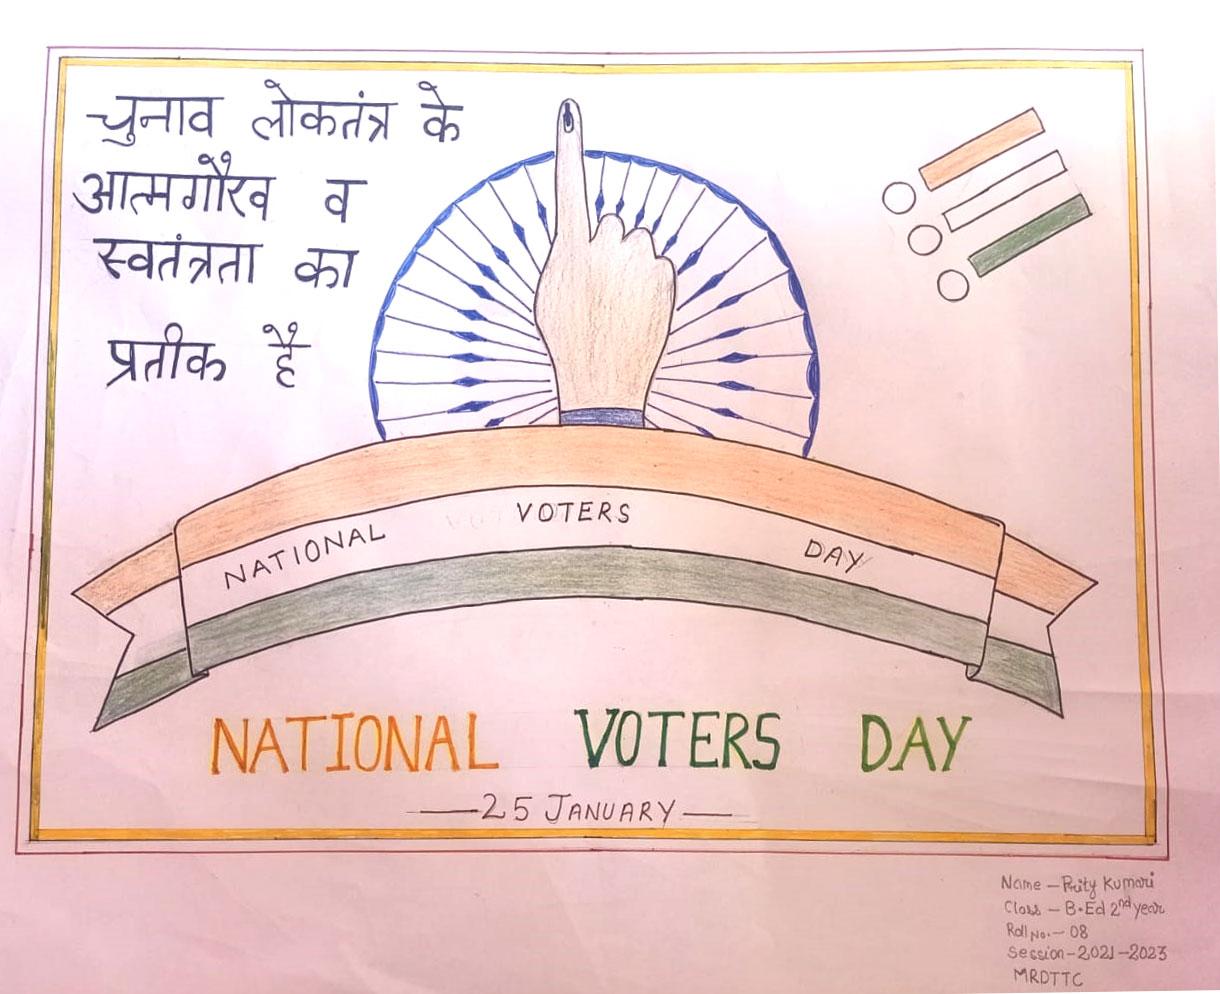 चुनाव लोकतंत्र के
आत्मगौरव व
स्वतंत्रता का
प्रतीक है
NATIONAL VOTERS DAY
NATIONAL VOTERS DAY
25 JANUARY
Name - Prity Kumari
Class - B.Ed 2nd year
Roll No. - 08
Session - 2021-2023
MRDTTC